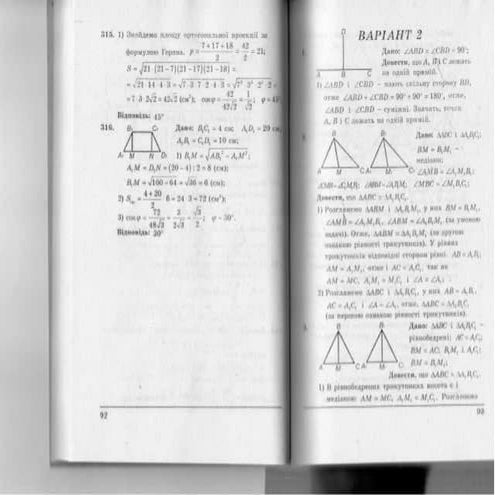 315. 1) Знайдемо площу ортогональної проекції за
формулою Герона. p = (7+17+18)/2 = 42/2 = 21;
S = √21·(21−7)(21−17)(21−18) =
= √21·14·4·3 = √7·3·7·2·4·3 = √7²·3²·2²·2 =
= 7·3·2√2 = 42√2 (см²); cosφ = 42/42√2 = 1/√2; φ = 45°
Відповідь: 45°
316.
B₁ C₁
A₁ M N D₁
Дано: B₁C₁ = 4 см; A₁D₁ = 20 см,
A₁B₁ = C₁D₁ = 10 см;
1) B₁M = √AB₁² − A₁M²;
A₁M = D₁N = (20−4) : 2 = 8 (см);
B₁M = √100+64 = √36 = 6 (см);
2) = (4+20)/2 · 6 = 24·3 = 72 (см²);
3) cosφ = 72/48√3 = 3/2√3 = √3/2; φ = 30°.
Відповідь: 30°
92
ВАРІАНТ 2
D
A B C
Дано: ∠ABD = ∠CBD = 90°;
Довести, що A, B і C лежать
на одній прямій.
1) ∠ABD і ∠CBD – мають спільну сторону BD,
отже ∠ABD + ∠CBD = 90° + 90° = 180°, отже,
∠ABD і ∠CBD – суміжні. Значить, точки
A, B і C лежать на одній прямій.
B B₁
A M C A₁ M₁ C₁
Дано: ΔABC і ΔA₁B₁C₁
BM = B₁M₁ –
медіани;
∠AMB = ∠A₁M₁B₁
Довести, що ΔABC = ΔA₁B₁C₁.
1) Розглянемо ΔABM і ΔA₁B₁M₁, у них BM = B₁M₁,
∠AMB = ∠A₁M₁B₁, ∠ABM = ∠A₁B₁M₁ (за умовою
задачі). Отже, ΔABM = ΔA₁B₁M₁ (за другою
ознакою рівності трикутників). У рівних
трикутників відповідні сторони рівні AB = A₁B₁
AM = A₁M₁; отже і AC = A₁C₁, так як
AM = MC, A₁M₁ = M₁C₁ і ∠A = ∠A₁.
2) Розглянемо ΔABC і ΔA₁B₁C₁, у них AB = A₁B₁,
AC = A₁C₁ і ∠A = ∠A₁, отже, ΔABC = ΔA₁B₁C₁
(за першою ознакою рівності трикутників).
B B
A M C A M C
Дано: ΔABC і ΔA₁B₁C₁ –
рівнобедрені; AC = A₁C₁;
BM ⊥ AC, B₁M₁ ⊥ A₁C₁;
BM = B₁M₁;
Довести, що ΔABC = ΔA₁B₁C₁.
1) В рівнобедрених трикутниках висота є і
медіаною AM = MC, A₁M₁ = M₁C₁. Розглянемо
93